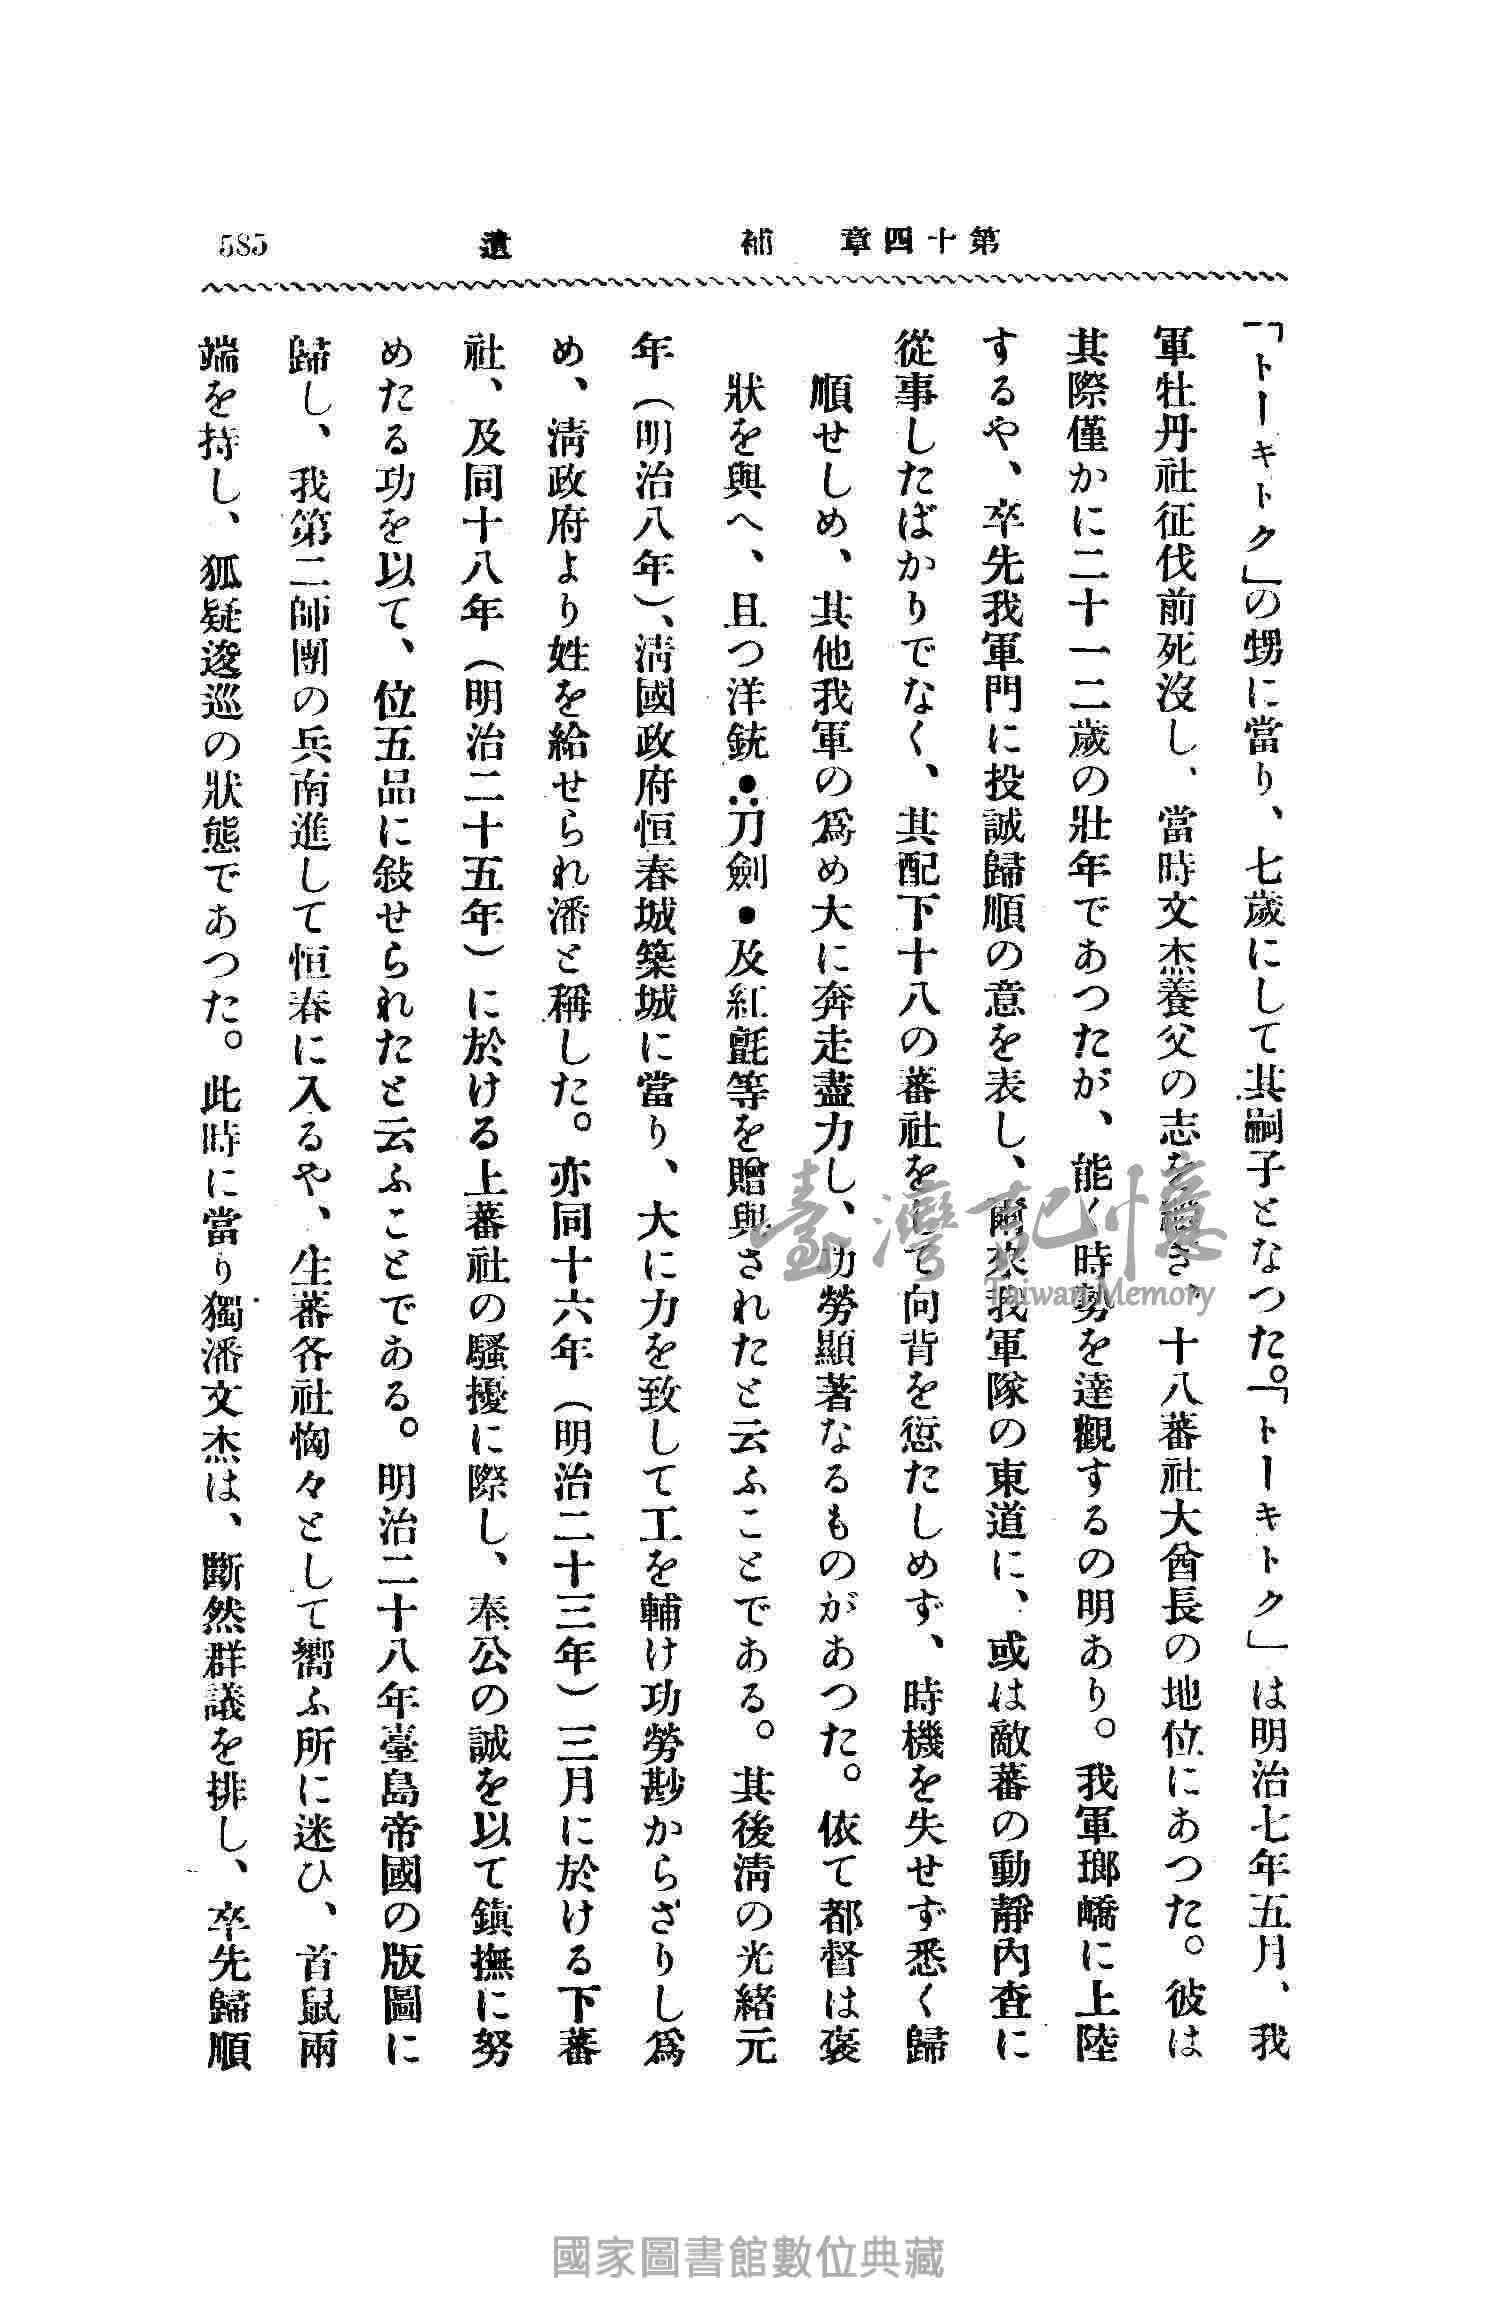 第十四章 補 遺 585
「トーキトク」の甥に當り、七歲にして其嗣子となつた。「トーキトク」は明治七年五月、我
軍牡丹社征伐前死沒し、當時文杰養父の志を繼ぎ、十八蕃社大酋長の地位にあつた。彼は
其際僅かに二十一二歲の壯年であつたが、能く時勢を達觀するの明あり。我軍瑯嶠に上陸
するや、卒先我軍門に投誠歸順の意を表し、爾來我軍隊の東道に、或は敵蕃の動靜內査に
從事したばかりでなく、其配下十八の蕃社をして向背を愆たしめず、時機を失せず悉く歸
順せしめ、其他我軍の爲め大に奔走盡力し、功勞顯著なるものがあつた。依て都督は褒
狀を與へ、且つ洋銃・刀劍・及紅氈等を贈與されたと云ふことである。其後淸の光緖元
年（明治八年）、淸國政府恒春城築城に當り、大に力を致して工を輔け功勞尠からざりし爲
め、淸政府より姓を給せられ潘と稱した。亦同十六年（明治二十三年）三月に於ける下蕃
社、及同十八年（明治二十五年）に於ける上蕃社の騷擾に際し、奉公の誠を以て鎭撫に努
めたる功を以て、位五品に敍せられたと云ふことである。明治二十八年臺島帝國の版圖に
歸し、我第二師團の兵南進して恒春に入るや、生蕃各社恟々として嚮ふ所に迷ひ、首鼠兩
端を持し、狐疑逡巡の狀態であつた。此時に當り獨潘文杰は、斷然群議を排し、卒先歸順
臺灣記憶
Taiwan Memory
國家圖書館數位典藏